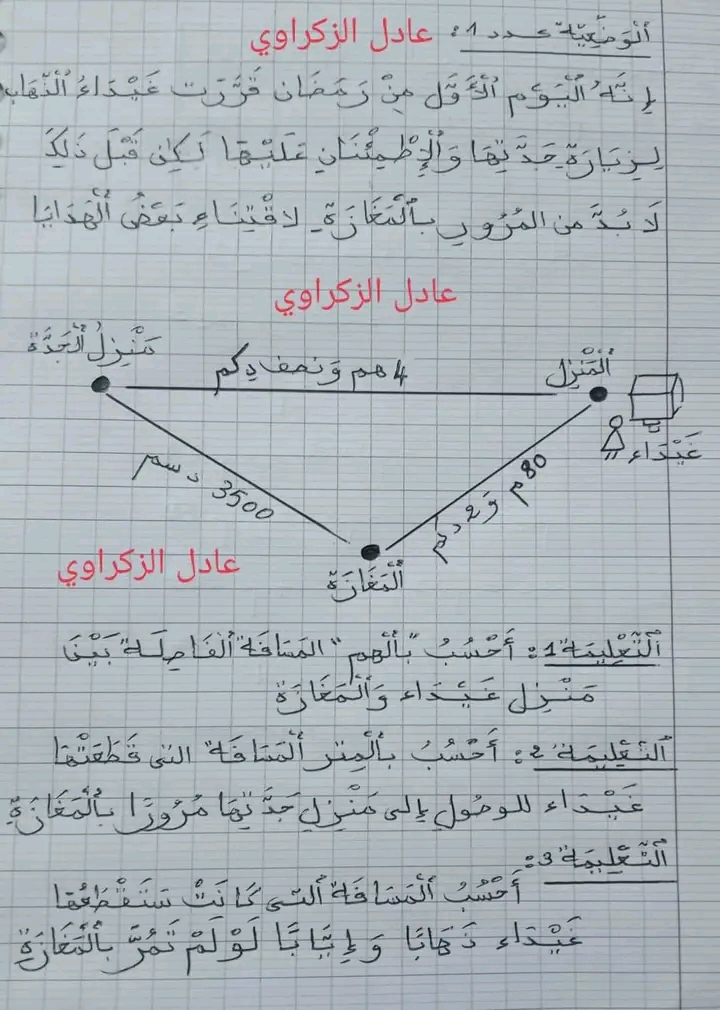 اَلْوَضْعِيَّة عدد 1: عادل الزكراوي
إِنَّهُ الْيَوْم الْأَوَّل مِنْ رَمَضَان قَرَّرَت غَيْدَاءُ الذَّهَاب
لِزِيَارَة جَدَّتِهَا وَالْإِطْمِئْنَانِ عَلَيْهَا لَكِن قَبْلَ ذَلِكَ
لَا بُدَّ من المُرُورِ بِالْمَغَازَةِ لاقْتِنَاءِ بَعْضُ الْهَدَايَا
عادل الزكراوي
مَنْزِلُ الْجَدَّة
4 هم وَنصف دكم
اَلْمَنْزِل
غَيْدَاء
3500 دسم
80م و 2 دم
عادل الزكراوي
اَلْمَغَازَة
اَلتَّعْلِيمَة 1: أَحْسُبُ "بِالْهم" المَسَافَة الْفَاصِلَة بَيْنَ
مَنْزِل غَيْدَاء وَالْمَغَازَة
اَلتَّعْلِيمَة 2: أَحْسُبُ بِالْمِتر اَلْمَسَافَة التي قَطَعَتْهَا
غَيْدَاء للوصُول إِلى مَنْزِلِ جَدَّتِهَا مُرُورًا بِالْمَغَازَةِ
اَلتَّعْلِيمَة 3:
أَحْسُبُ اَلْمَسَافَة اَلتي كَانَتْ سَتَقْطَعُهَا
غَيْدَاء ذَهَابًا وَإِيَّابًا لَوْ لَمْ تَمُرَّ بِالْمَغَازَة